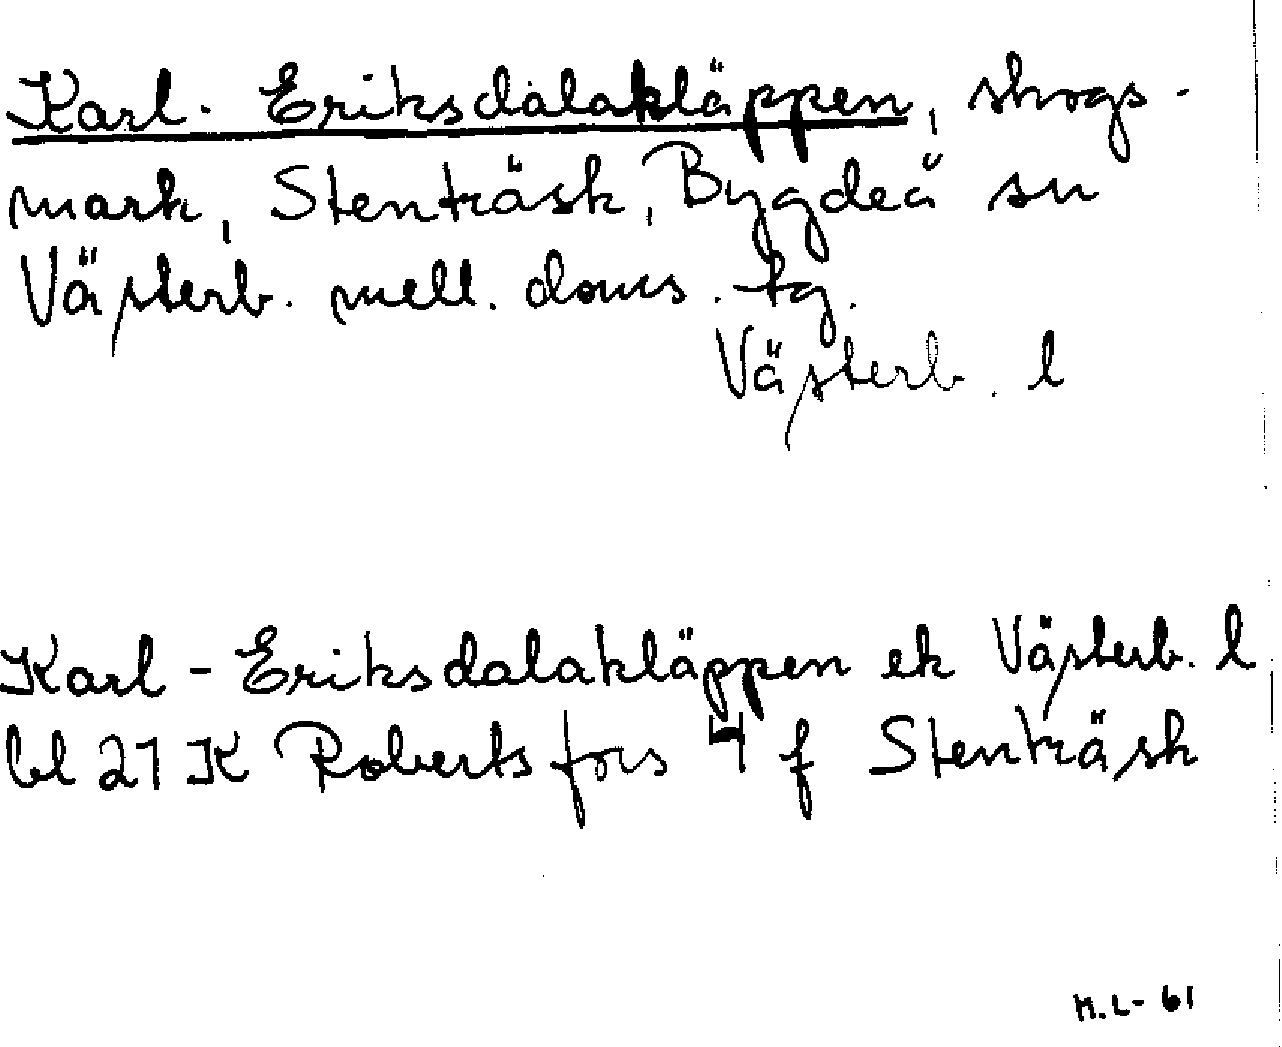 Karl-Eriksdalakläppen, skogs-
mark, Stenträsk, Bygdeå sn
Västerb. mell. doms. tg.
Västerb. l
Karl-Eriksdalakläppen ek Västerb. l
bl 21 K Robertsfors 4 f Stenträsk
M.L-61